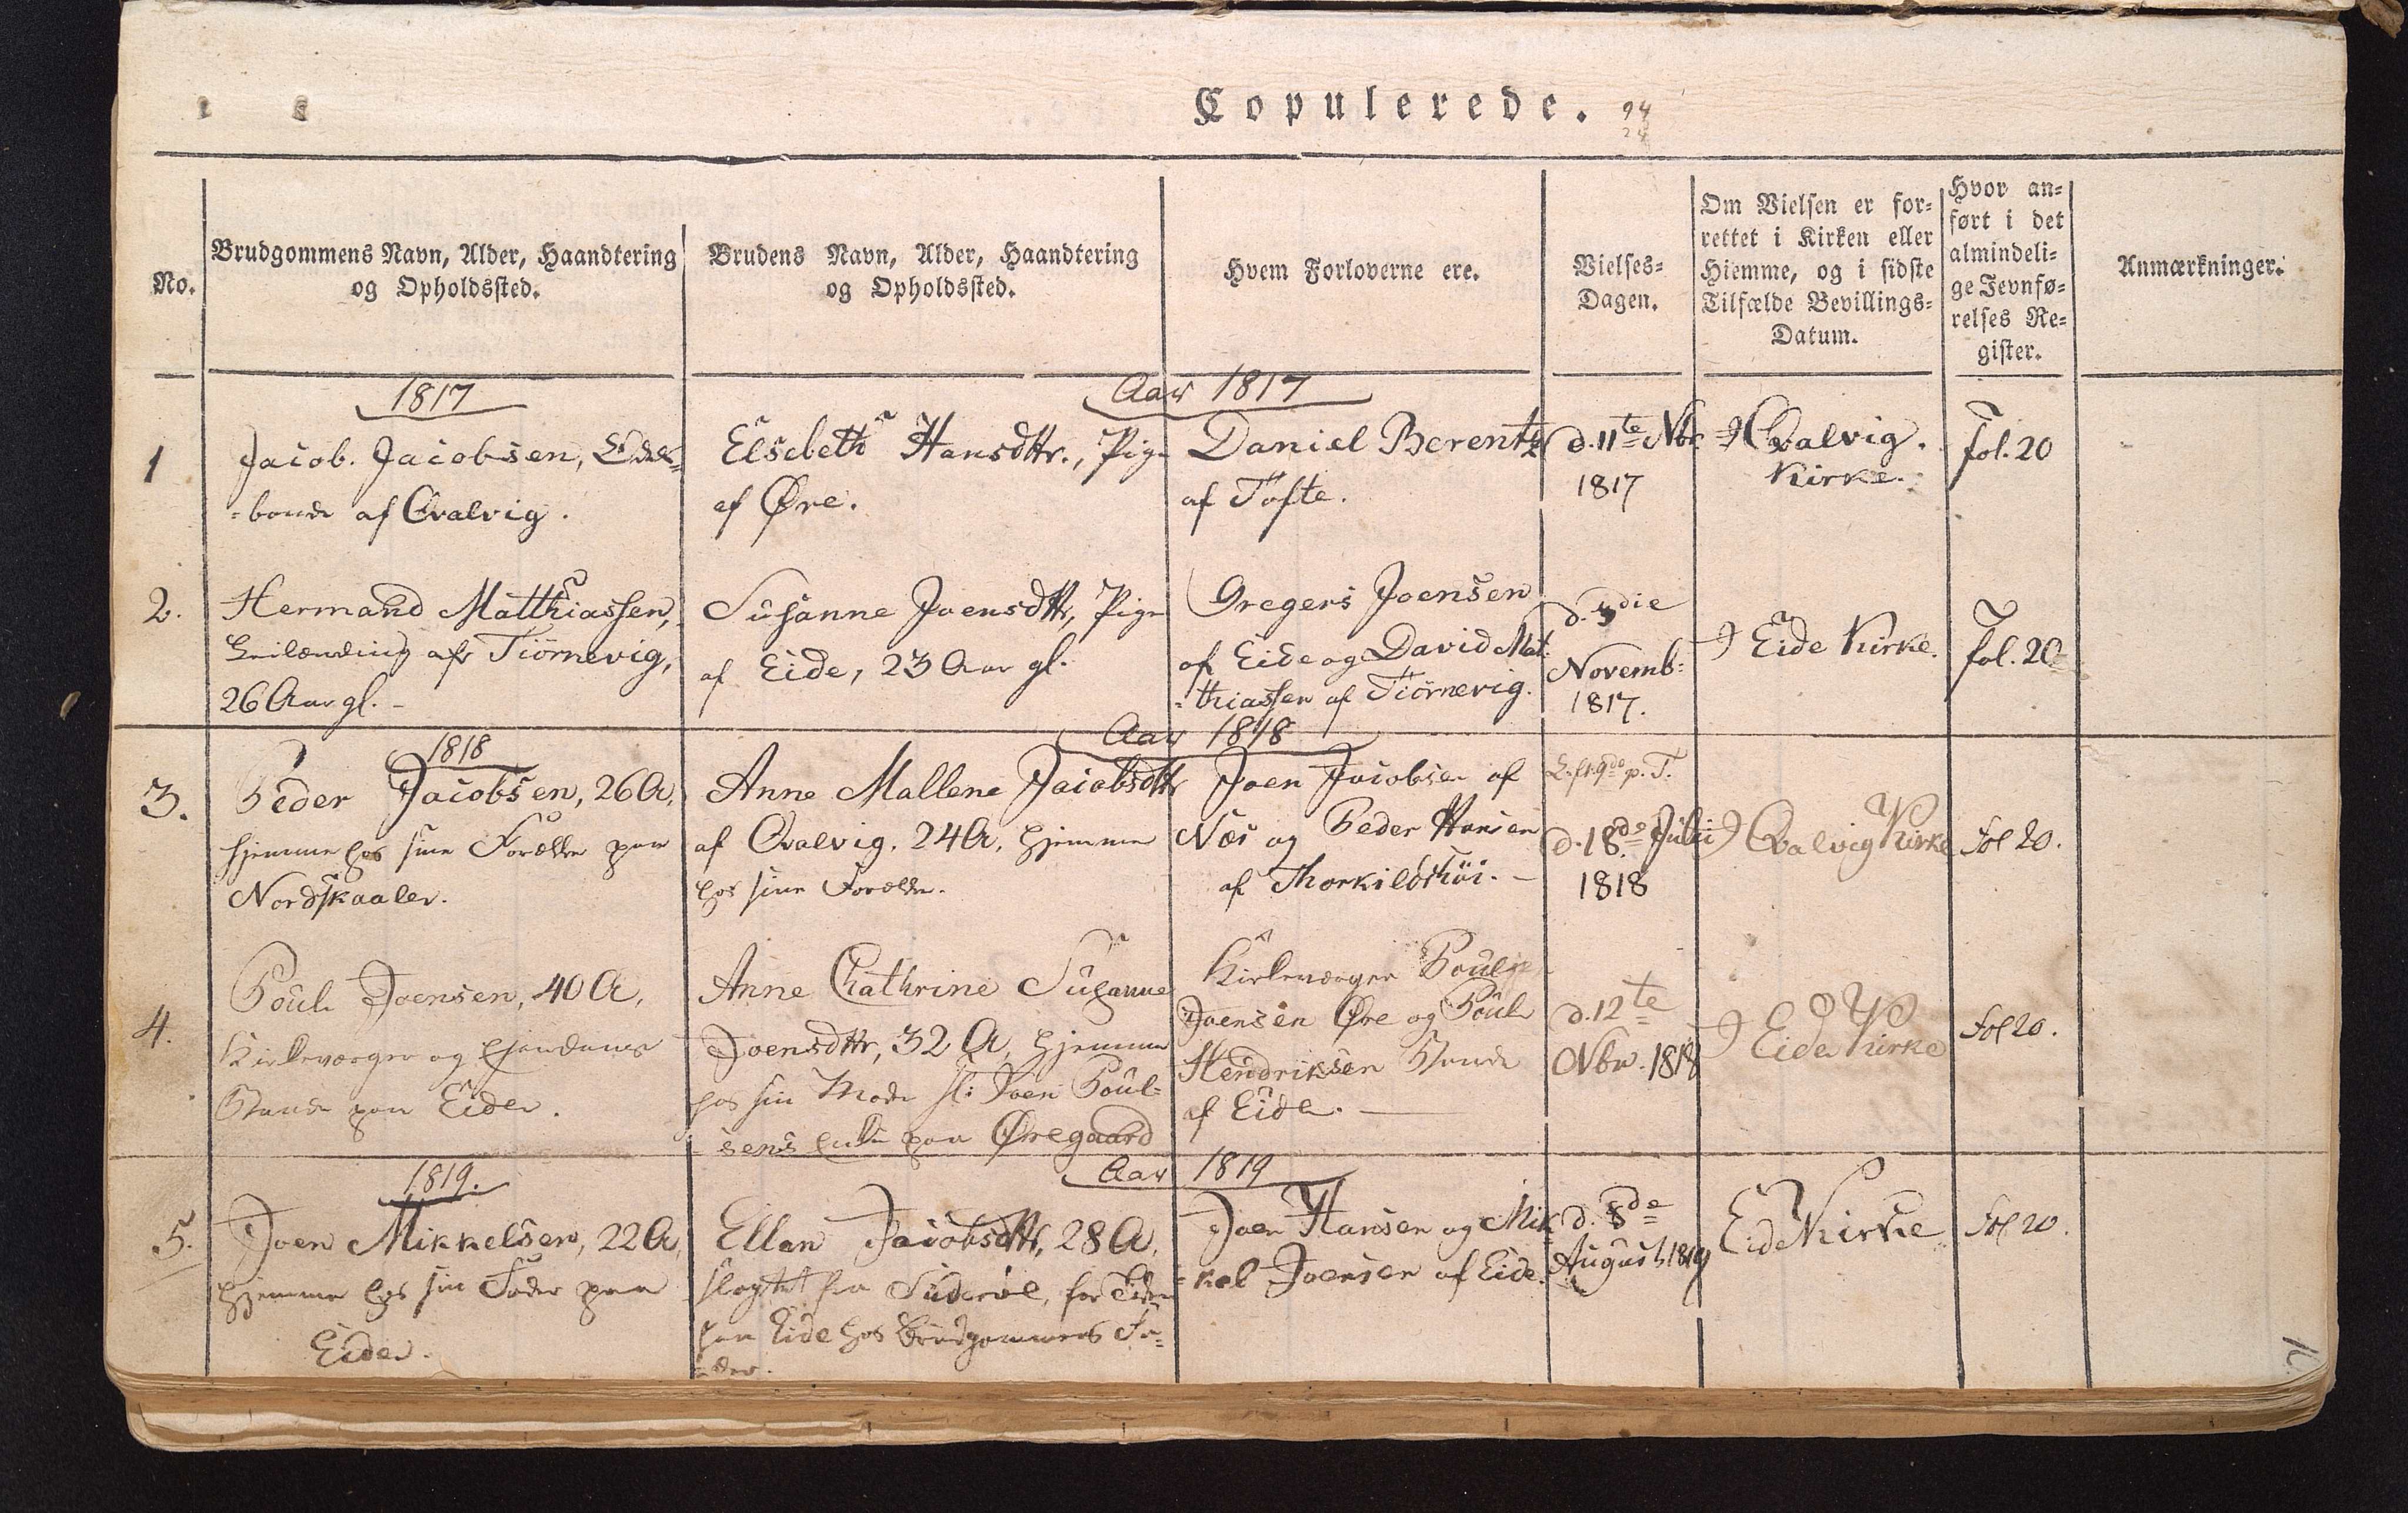 Copulerede.
94
24
No.
Brudgommens Navn, Alder, Haandtering
og Opholdssted.
Brudens Navn, Alder, Haandtering
og Opholdssted.
Hvem Forloverne ere.
Vielses-
Dagen.
Om Vielsen er for-
rettet i Kirken eller
Hiemme, og i sidste
Tilfælde Bevillings-
Datum.
Hvor an-
ført i det
almindeli-
ge Jevnfø-
relses Re-
gister.
Anmærkninger.
1817
Aar 1817
1
Jacob. Jacobsen, Odels-
-bonde af Qvalvig.
Elsebeth Hansdttr., Pige
af Øre.
Daniel Berentz
af Tofte.
d. 11te Nbr.
1817
I Qvalvig.
Kirke.
fol. 20
2.
Hermand Matthiassen,
af Tiörnevig,
26 Aar gl. -
Susanne Joensdttr, Pige
af Eide, 23 Aar gl.
Gregers Joensen
af Eide og David Mat-
-thiassen af Tiörnevig.
Novemb:
1817.
I Eide Kirke.
fol. 20
1818
Aar 1818
3.
Peder Jacobsen, 26 A,
hjemme hos sine Forældre paa
Nordskaaler.
Anne Mallene Jacobsdttr
af Qvalvig. 24 A, hjemme
hos sine Forældre.
Joen Jacobsen af
Næs og Peder Hansen
af
p. T.
d. 18de Julii
1818
I Qvalvig Kirke
Fol 20.
4.
Poul Joensen, 40 A,
Kirkeværger og
Bonde paa Eide.
Anne Chathrine Susanne
Joensdttr, 32 A, hjemme
hos sin Moder sl: Joen Poul-
sens Enke paa Øregaard
Kirkeværger Poul
Joensen Øre og Poul
Hendriksen Bonde
af Eide.
d. 12te
Nbr. 1818
I Eide Kirke
Fol 20.
1819.
Aar 1819
5.
Joen Mikkelsen, 22 A,
hjemme hos sin Fader paa
Eide.
Ellen Jacobsdttr, 28 A,
fra Suderöe, for Tiden
paa Eide hos Brudgommens Fa-
-der.
Joen Hansen og Mik-
-kel Joensen af Eide.
d. 8de
August. 1819
Eide Kirke
Fol 20.